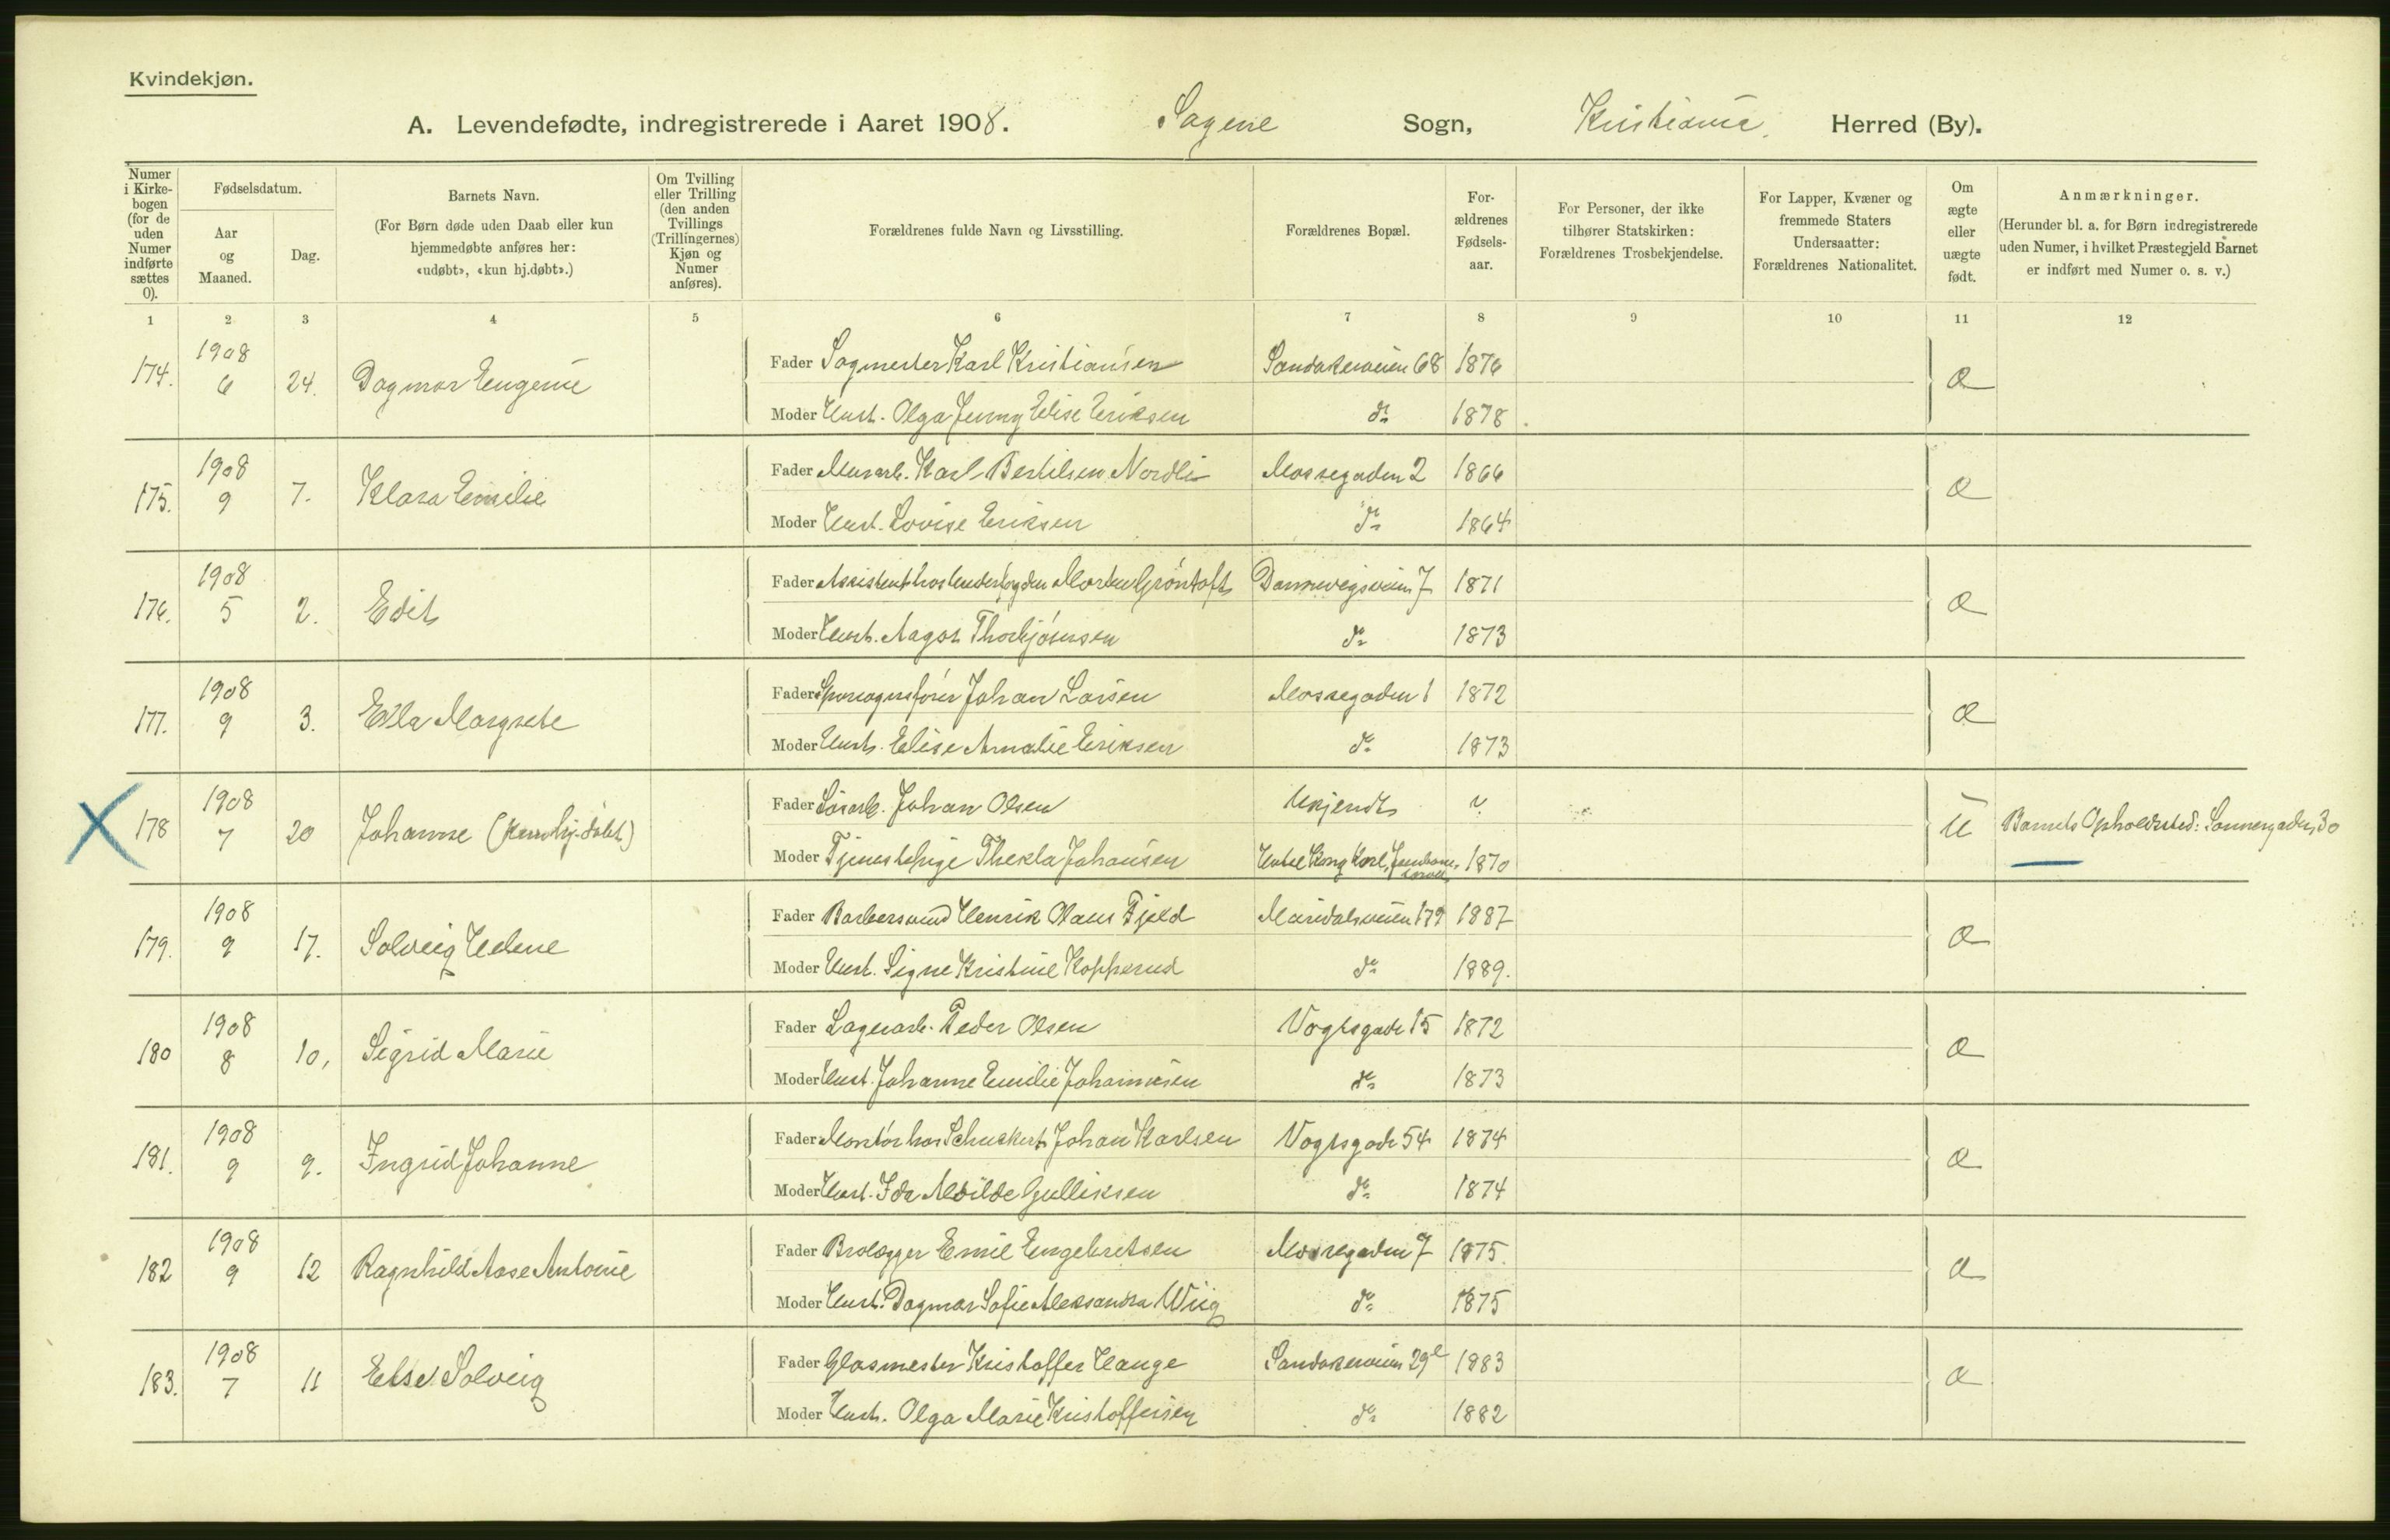 Kvindekjøn.
A. Levendefødte, indregistrerede i Aaret 1908. Sagene Sogn, Kristiania. Herred (By).
Numer i Kirkebogen (for de uden Numer indførte sættes 0).
Fødselsdatum.
Aar og Maaned.
Dag.
Barnets Navn.
(For Børn døde uden Daab eller kun hjemmedøbte anføres her: «udøbt», «kun hj.døbt».)
Om Tvilling eller Trilling (den anden Tvillings (Trillingernes) Kjøn og Numer anføres).
Forældrenes fulde Navn og Livsstilling.
Forældrenes Bopæl.
Forældrenes Fødselsaar.
For Personer, der ikke tilhører Statskirken: Forældrenes Trosbekjendelse.
For Lapper, Kvæner og fremmede Staters Undersaatter: Forældrenes Nationalitet.
Om ægte eller uægte født.
Anmærkninger.
(Herunder bl. a. for Børn indregistrerede uden Numer, i hvilket Præstegjeld Barnet er indført med Numer o. s. v.)
1 2 3 4 5 6 7 8 9 10 11 12
174. 1908 6 24. Dagmar Eugenie Fader Sagmester Karl Kristiansen Sandakerveien 68 1876 æ
Moder Hust. Olga Jenny Elise Eriksen do 1878
175. 1908 9 7. Klara Emilie Fader Murarb. Karl Bertilsen Nordli Mossegaden 2 1866 æ
Moder Hust. Lovise Eriksen do 1864
176. 1908 5 2. Edit Fader Assistent hos Underfogden Morten Grøntoft Dannevigsveien 7 1871 æ
Moder Hust. Aagot Thorbjørnsen do 1873
177. 1908 9 3. Ella Margrete Fader Sporvognsfører Johan Larsen Mossegaden 1 1872 æ
Moder Hust. Elise Amalie Eriksen do 1873
178 1908 7 20 Johanne (kun hj.døbt) Fader Løsarb. Johan Olsen Ukjendt ? U Barnets Opholdsted: Sannergaden 30
Moder Tjenestepige Thekla Johansen Hotel Kong Karl, Jernbane 1870
179. 1908 9 17. Solveig Helene Fader Barbersvend Henrik Olaus Fjeld Maridalsveien 179 1887 æ
Moder Hust. Signe Kristine Kopperud do 1889.
180 1908 8 10, Sigrid Marie Fader Lagerarb. Peder Olsen Vogtsgade 15 1872 æ
Moder Hust. Johanne Emilie Johannesen do 1873
181. 1908 9 9. Ingrid Johanne Fader Montør hos Schuckert Johan Karlsen Vogtsgade 54 1874 æ
Moder Hust. Ida Alvilde Gulliksen do 1874
182 1908 9 12 Ragnhild Aase Antonie Fader Brolægger Emil Engebretsen Mossegaden 7 1875. æ
Moder Hust. Dagmar Sofie Aleksandra Wiig do 1875
183. 1908 7 11 Else Solveig Fader Glasmester Kristoffer Hauge Sandakerveien 29 1883 æ
Moder Hust. Olga Marie Kristoffersen do 1882